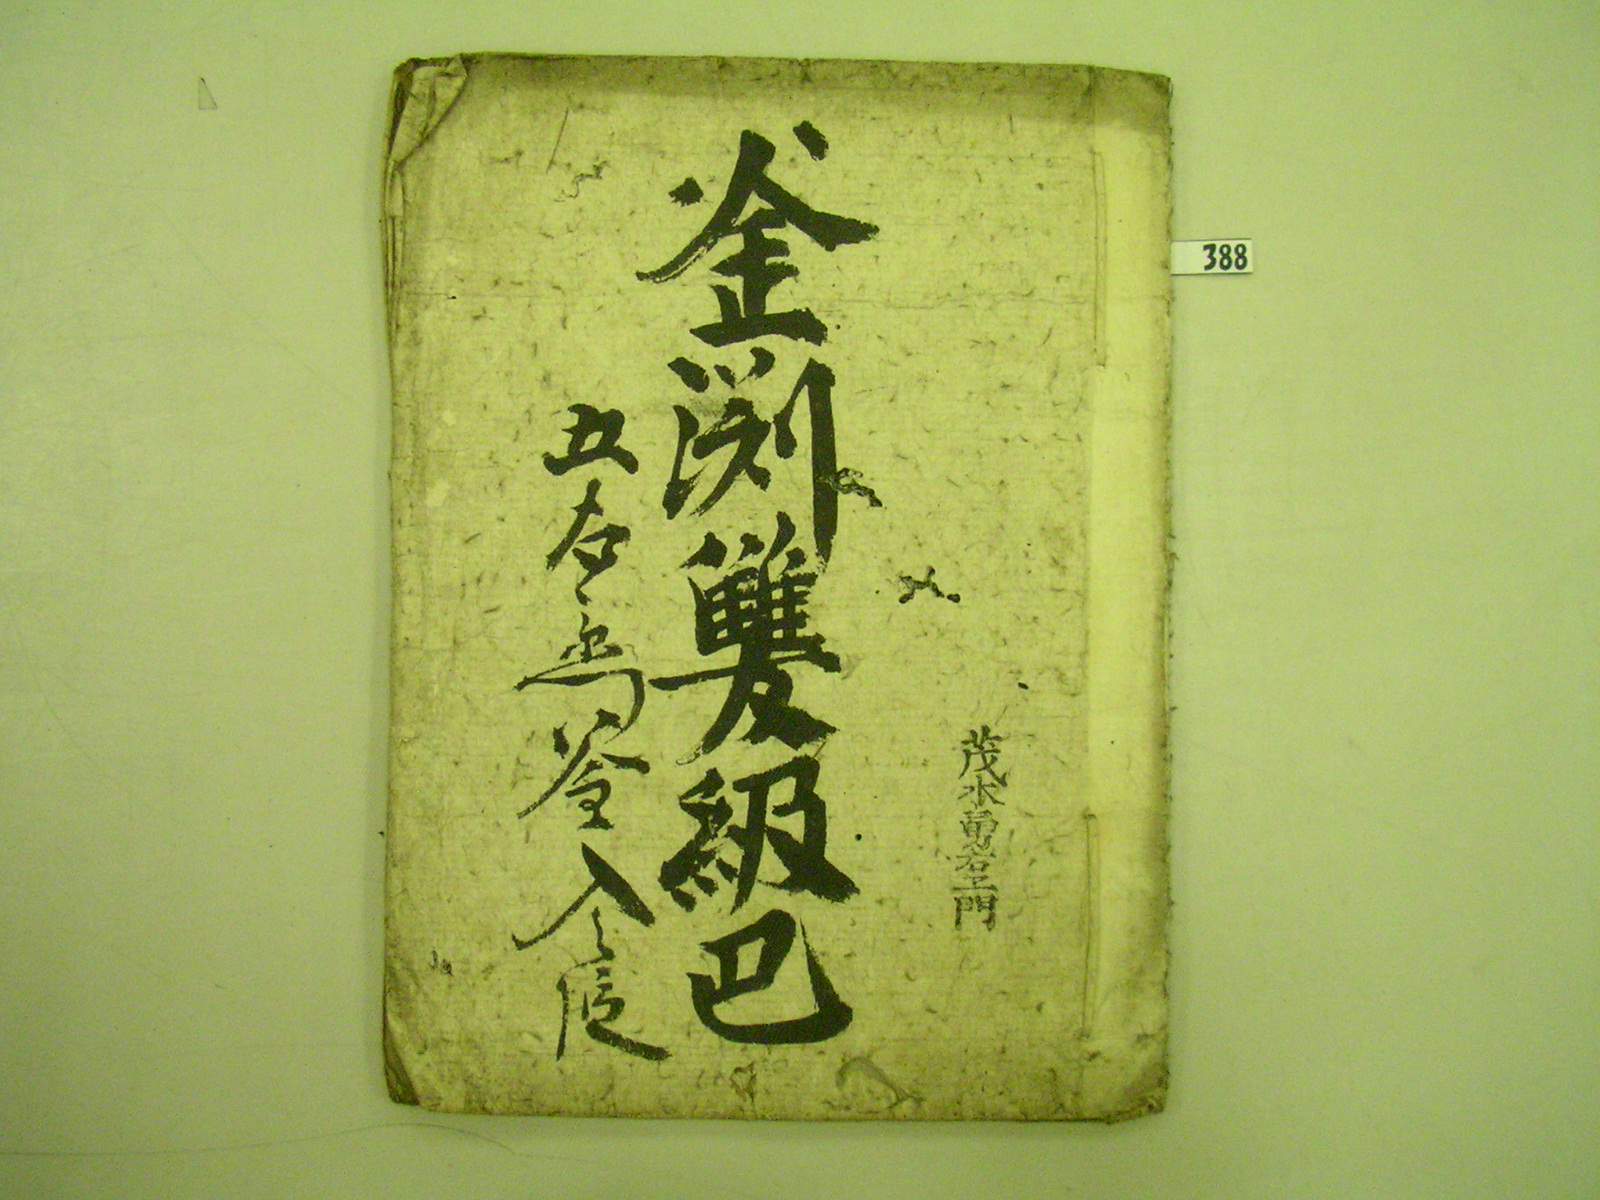 茂木勇右エ門
釜渕雙級巴
五右衛門釜入之段
388